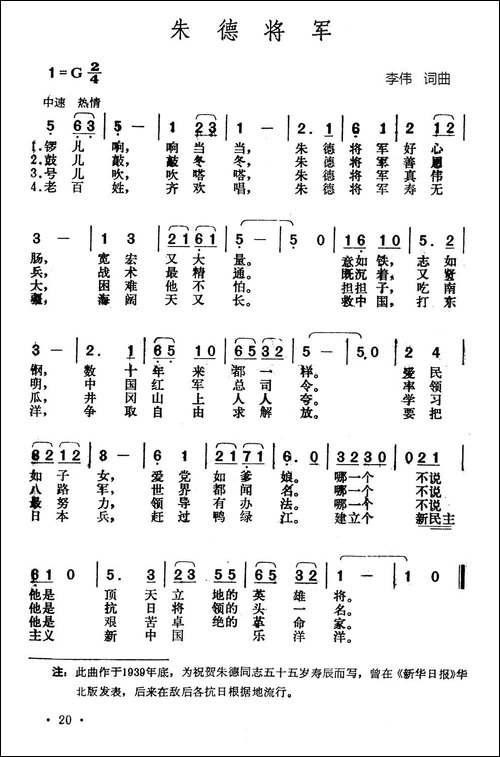 朱德将军
1=G 2/4
李伟 词曲
中速 热情
5 63 | 5 - | 1 1 | 1 23 | 1 - | 2. 1 | 6 1 | 2 12 |
1.锣儿 响, 响当 当, 朱德 将军 好心
2.鼓儿 敲, 敲冬 冬, 朱德 将军 善恩
3.号儿 吹, 吹嗒 嗒, 朱德 将军 真伟
4.老百 姓, 齐欢 唱, 朱德 将军 寿无
3 - | 1 3 | 21 61 | 5 - | 5 0 | 16 10 | 5 5 |
肠, 宽宏 又大 量。 意如铁, 志如
兵, 战术 最精 通。 既沉着, 又贤
大, 困难 他不 怕。 担担子, 吃南
疆, 海阔 天又 长。 救中国, 打东
3 - | 2. 1 | 65 10 | 65 32 | 5 - | 5 0 | 2 4 |
钢, 数十 年来 都一 样。 爱民
明, 中国 红军 总司 令。 率领
瓜, 井冈 山上 人人 夸。 学习
洋, 争取 自由 求解 放。 要把
32 12 | 3 - | 6 1 | 5 5 | 21 71 | 6. 0 | 32 30 | 021 |
如子 女, 爱党 如爹 娘。 哪一个 不说
八路 军, 世界 都闻 名。 哪一个 不说
最努 力, 领导 有办 法。 哪一个 不说
日本 兵, 赶过 鸭绿 江。 建立个 新民主
61 0 | 5. 3 | 2 1 | 23 55 | 65 32 | 1 - | 1 0 ‖
他是 顶天 立地的 英雄 将。
他是 抗日 将领的 头一 名。
他是 艰苦 卓绝的 革命 家。
主义 新中 国 乐洋 洋。
注：此曲作于1939年底，为祝贺朱德同志五十五岁寿辰而写，曾在《新华日报》华
北版发表，后来在敌后各抗日根据地流行。
· 20 ·